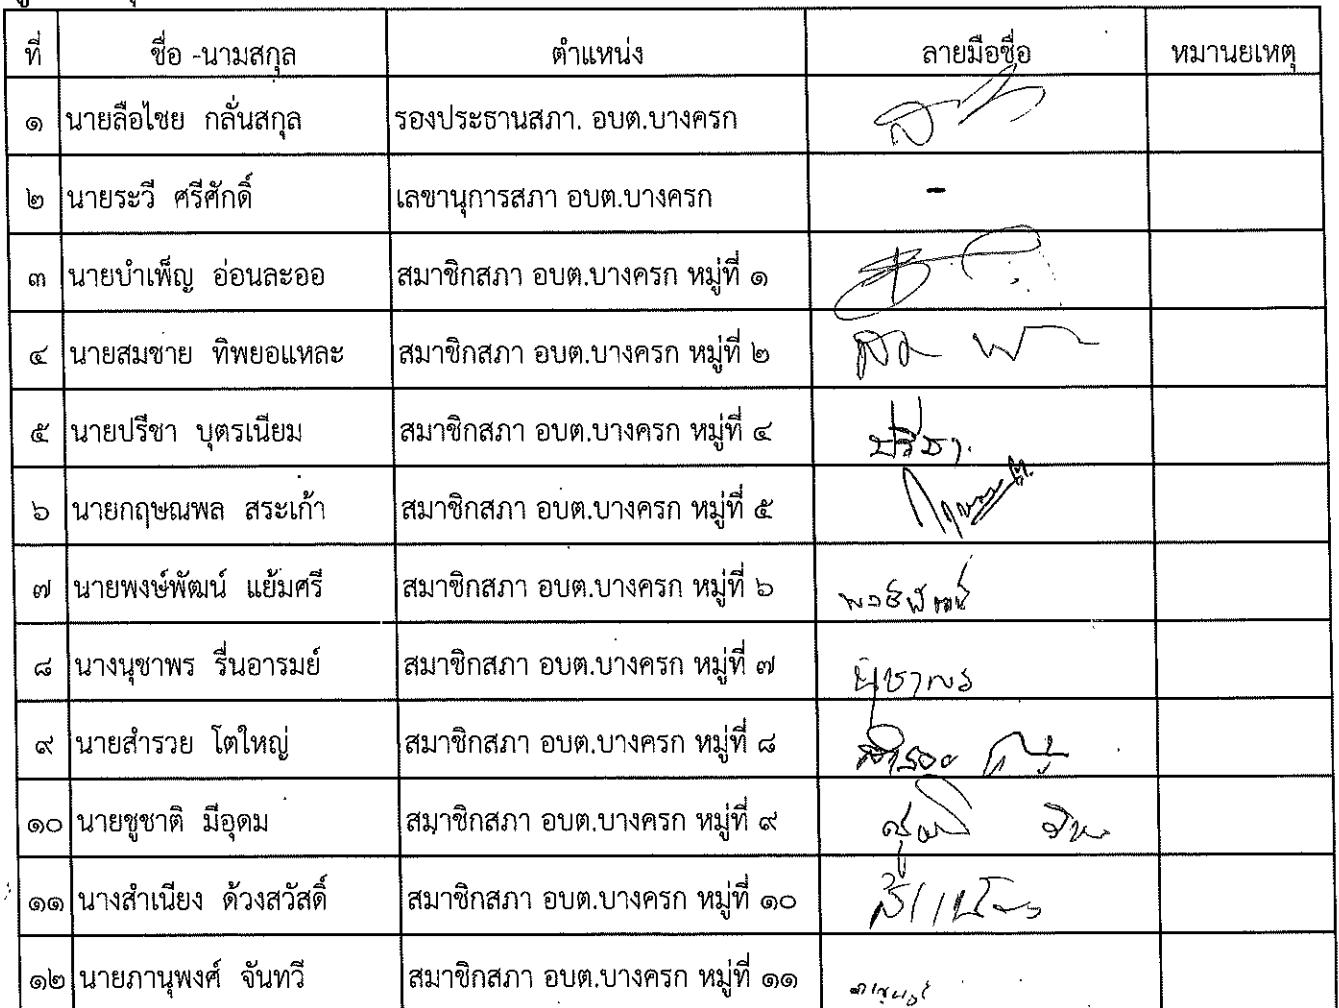 ที่ ชื่อ -นามสกุล ตำแหน่ง ลายมือชื่อ หมานยเหตุ
๑ นายลือไชย กลั่นสกุล รองประธานสภา. อบต.บางครก
๒ นายระวี ศรีศักดิ์ เลขานุการสภา อบต.บางครก -
๓ นายบำเพ็ญ อ่อนละออ สมาชิกสภา อบต.บางครก หมู่ที่ ๑
๔ นายสมชาย ทิพยอแหละ สมาชิกสภา อบต.บางครก หมู่ที่ ๒
๕ นายปรีชา บุตรเนียม สมาชิกสภา อบต.บางครก หมู่ที่ ๔ ปรีชา.
๖ นายกฤษณพล สระเก้า สมาชิกสภา อบต.บางครก หมู่ที่ ๕
๗ นายพงษ์พัฒน์ แย้มศรี สมาชิกสภา อบต.บางครก หมู่ที่ ๖ พงษ์พัฒน์
๘ นางนุชาพร รื่นอารมย์ สมาชิกสภา อบต.บางครก หมู่ที่ ๗ นุชาพร
๙ นายสำรวย โตใหญ่ สมาชิกสภา อบต.บางครก หมู่ที่ ๘
๑๐ นายชูชาติ มีอุดม สมาชิกสภา อบต.บางครก หมู่ที่ ๙
๑๑ นางสำเนียง ด้วงสวัสดิ์ สมาชิกสภา อบต.บางครก หมู่ที่ ๑๐
๑๒ นายภานุพงศ์ จันทวี สมาชิกสภา อบต.บางครก หมู่ที่ ๑๑